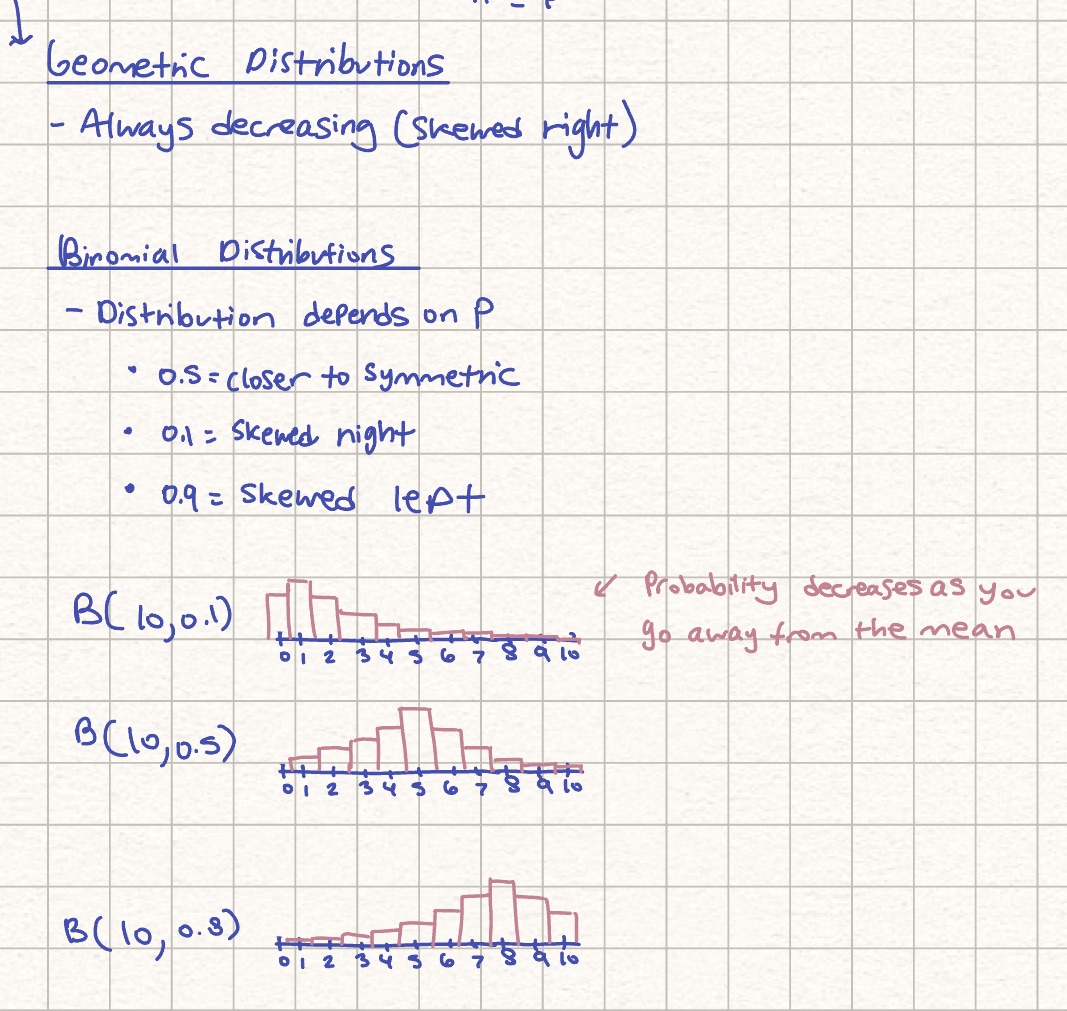 Geometric Distributions
- Always decreasing (skewed right)
Binomial Distributions
- Distribution depends on P
• 0.5 = closer to symmetric
• 0.1 = skewed right
• 0.9 = skewed left
B(10,0.1)
0 1 2 3 4 5 6 7 8 9 10
↙ Probability decreases as you
go away from the mean
B(10,0.5)
0 1 2 3 4 5 6 7 8 9 10
B(10, 0.8)
0 1 2 3 4 5 6 7 8 9 10